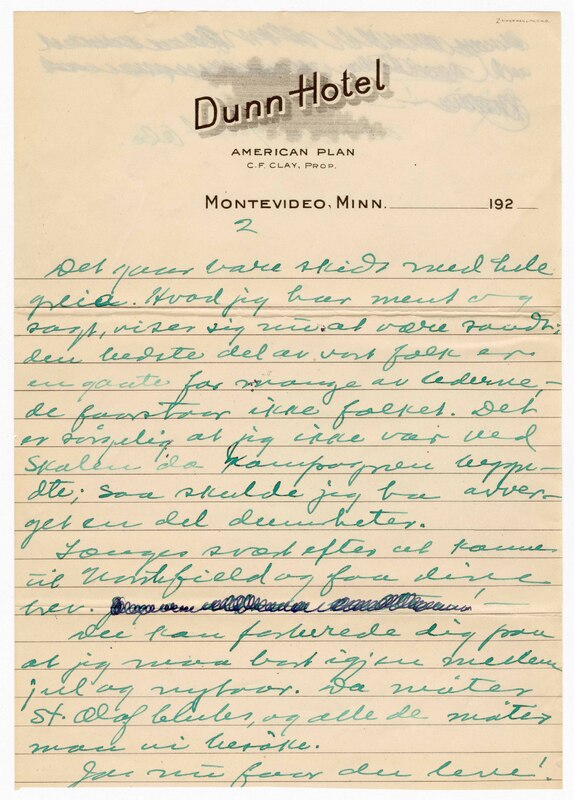 Dunn Hotel
AMERICAN PLAN
C. F. CLAY, PROP.
MONTEVIDEO, MINN. 192
2
Det gaar bare skidt med hele
greia. Hvad jeg har ment og
sagt, viser sig nu at være sandt;
den bedste del av vort folk er
en gaate for mange av lederne,–
de forstaar ikke folket. Det
er sørgelig at jeg ikke var ved
Skolen da kampagnen begyn-
dte; saa skulde jeg ha avver-
get en del dumheter.
Længes svært efter at komme
til Northfield og faa dine
brev.
Du kan forberede dig paa
at jeg maa bort igjen mellem
jul og nytaar. Da møter
St. Olaf Clubs, og alle de møter
maa vi besøke.
Ja nu faar du leve!